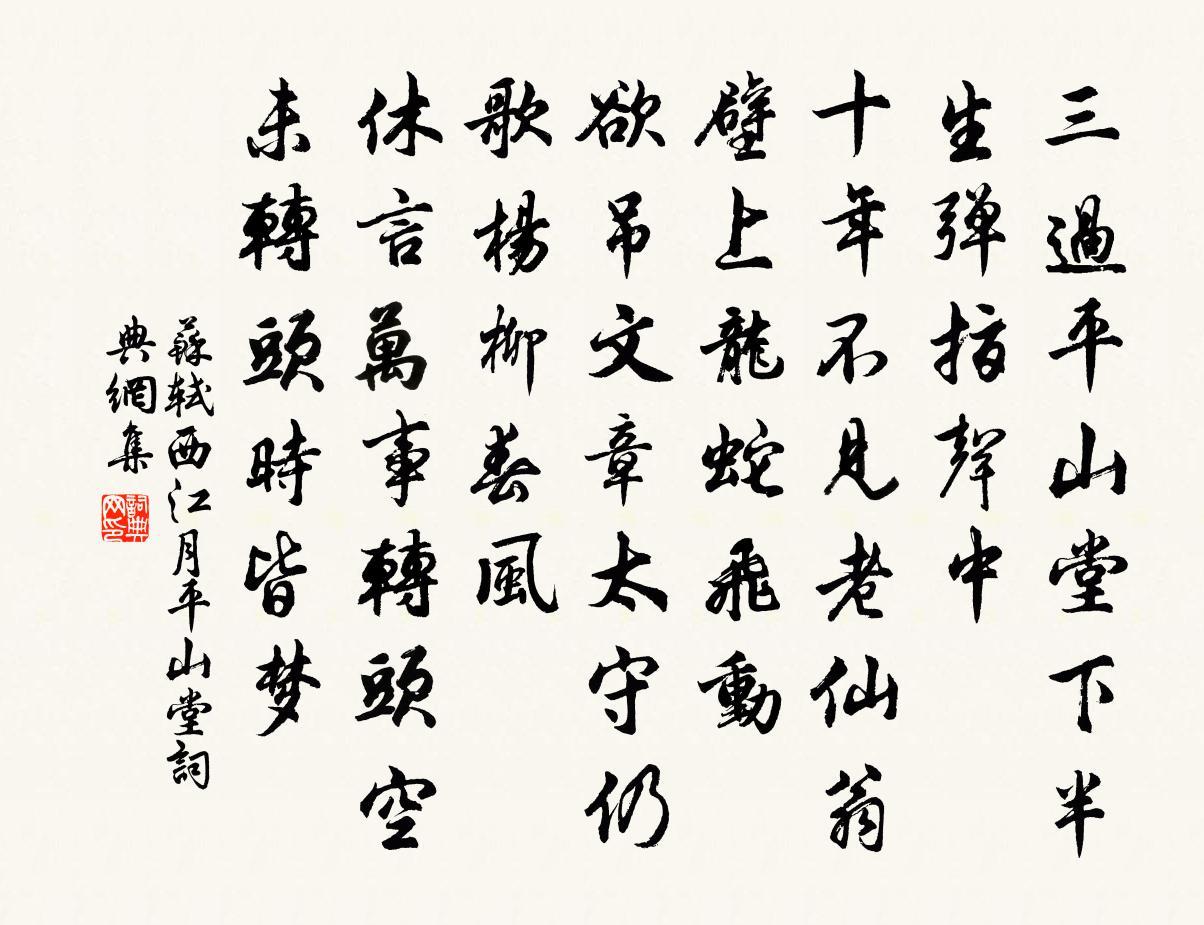 三過平山堂下半
生弹指聲中
十年不見老仙翁
壁上龍蛇飛動
欲吊文章太守仍
歌楊柳春風
休言萬事轉頭空
未轉頭時皆梦
蘇軾西江月平山堂詞
典網集
詞典网印